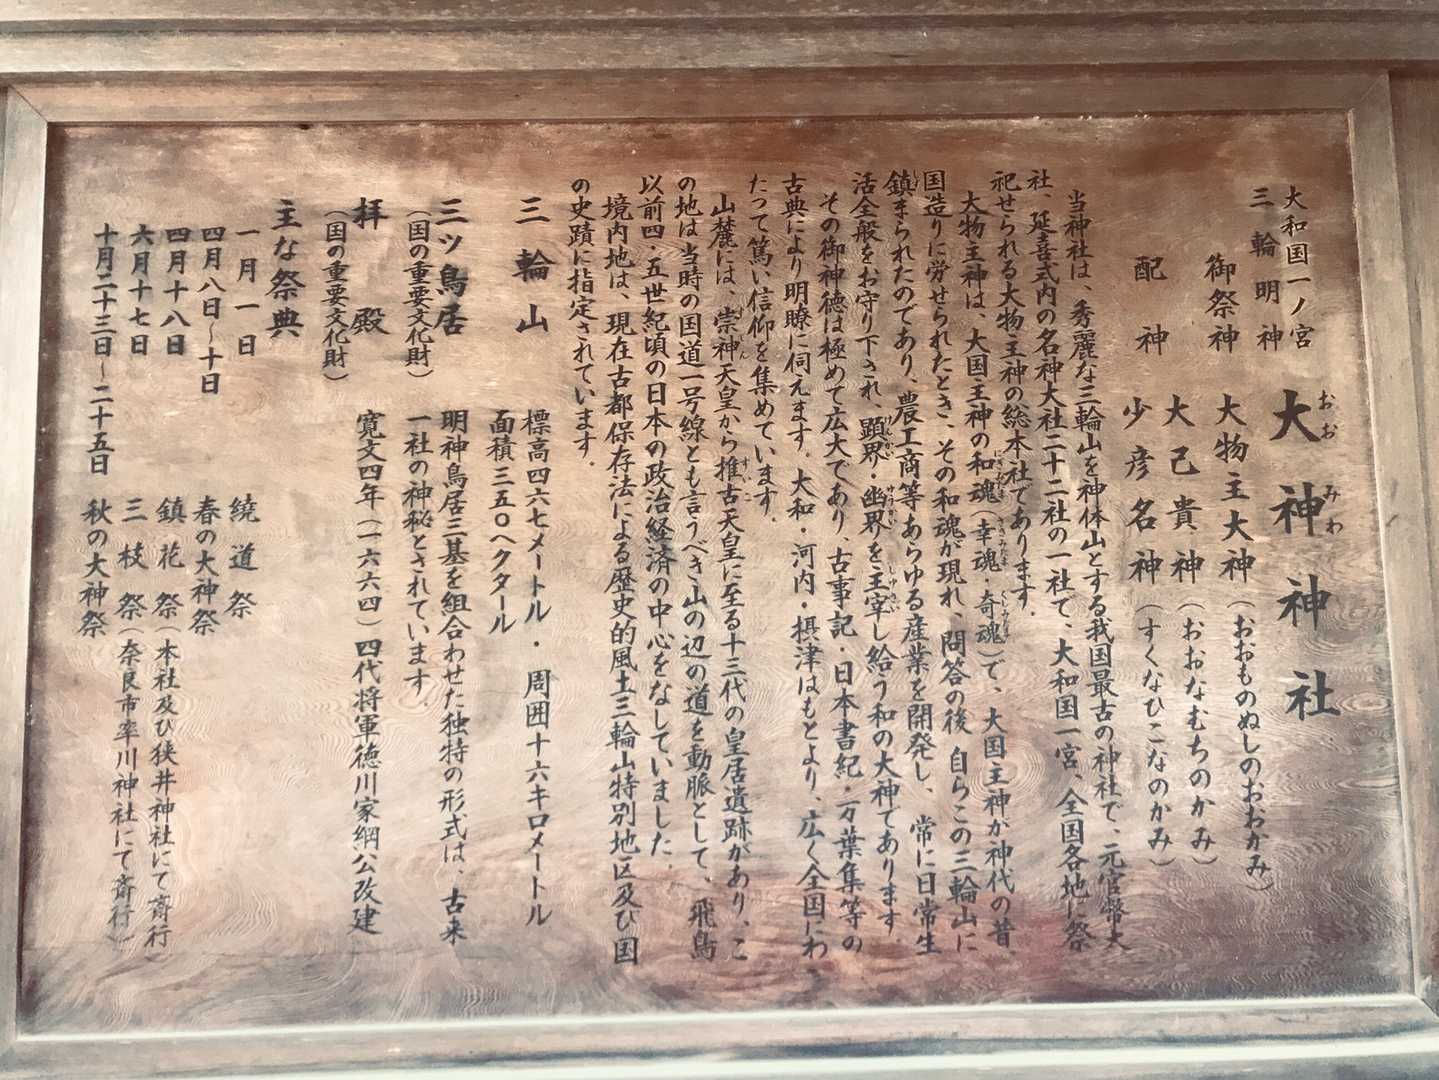 大和国一ノ宮
三輪明神
大神神社
おお みわ
御祭神 大物主大神（おおものぬしのおおかみ）
配神 大己貴神（おおなむちのかみ）
少彦名神（すくなひこなのかみ）
当神社は、秀麗な三輪山を神体山とする我国最古の神社で、元官幣大
社、延喜式内の名神大社二十二社の一社で、大和国一宮、全国各地に祭
祀せられる大物主神の総本社であります.
大物主神は、大国主神の和魂（幸魂・奇魂）で、大国主神が神代の昔、
にぎみたま さきみたま くしみたま
国造りに労せられたとき、その和魂が現れ、問答の後 自らこの三輪山に
鎮まられたのであり、農工商等あらゆる産業を開発し、常に日常生
しず
活全般をお守り下され、顕界・幽界を主宰し給う和の大神であります.
けんかい ゆうかい しゅさい
その御神徳は極めて広大であり、古事記・日本書紀・万葉集等の
古典により明瞭に伺えます. 大和・河内・摂津はもとより、広く全国にわ
たって篤い信仰を集めています.
山麓には、崇神天皇から推古天皇に至る十三代の皇居遺跡があり、こ
すじん すいこ
の地は当時の国道一号線とも言うべき山の辺の道を動脈として、飛鳥
以前四・五世紀頃の日本の政治経済の中心をなしていました.
境内地は、現在古都保存法による歴史的風土三輪山特別地区及び国
の史蹟に指定されています.
三輪山 標高四六七メートル・周囲十六キロメートル
面積三五〇ヘクタール
三ツ鳥居 明神鳥居三基を組合わせた独特の形式は、古来
（国の重要文化財） 一社の神秘とされています.
拝殿 寛文四年（一六六四）四代将軍徳川家綱公改建
（国の重要文化財）
主な祭典
一月一日 繞道祭
四月八日〜十日 春の大神祭
四月十八日 鎮花祭（本社及び狭井神社にて斎行）
六月十七日 三枝祭（奈良市率川神社にて斎行）
十月二十三日〜二十五日 秋の大神祭